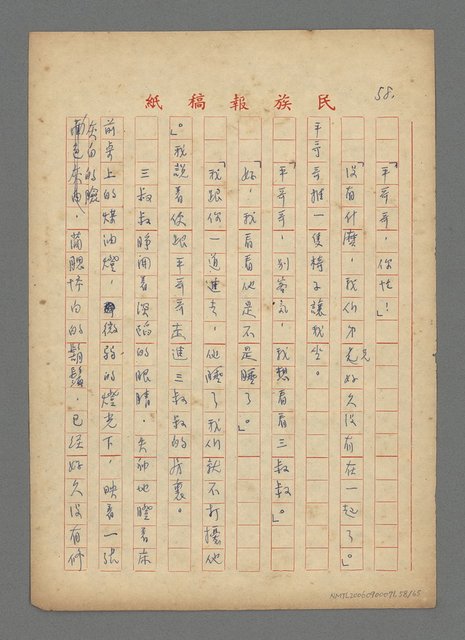 民族報稿紙
58.
「平哥哥，你忙！」
「沒有什麼，我們弟兄好久沒有在一起了。」
平哥哥推一隻椅子讓我坐。
「平哥哥，別客氣，我想看看三叔叔。」
「好，我看看他是不是睡了。」
「我跟你一道進去，他睡了我們就不打擾他
。」我說着便跟平哥哥走進三叔叔的房裏。
三叔叔睜開着深陷的眼睛，失神地瞪着床
前桌上的煤油燈，微弱的燈光下，映着一張
灰白的臉，蘭腮花白的鬍鬚，已經好久沒有修
NMTL20060900071.58/65